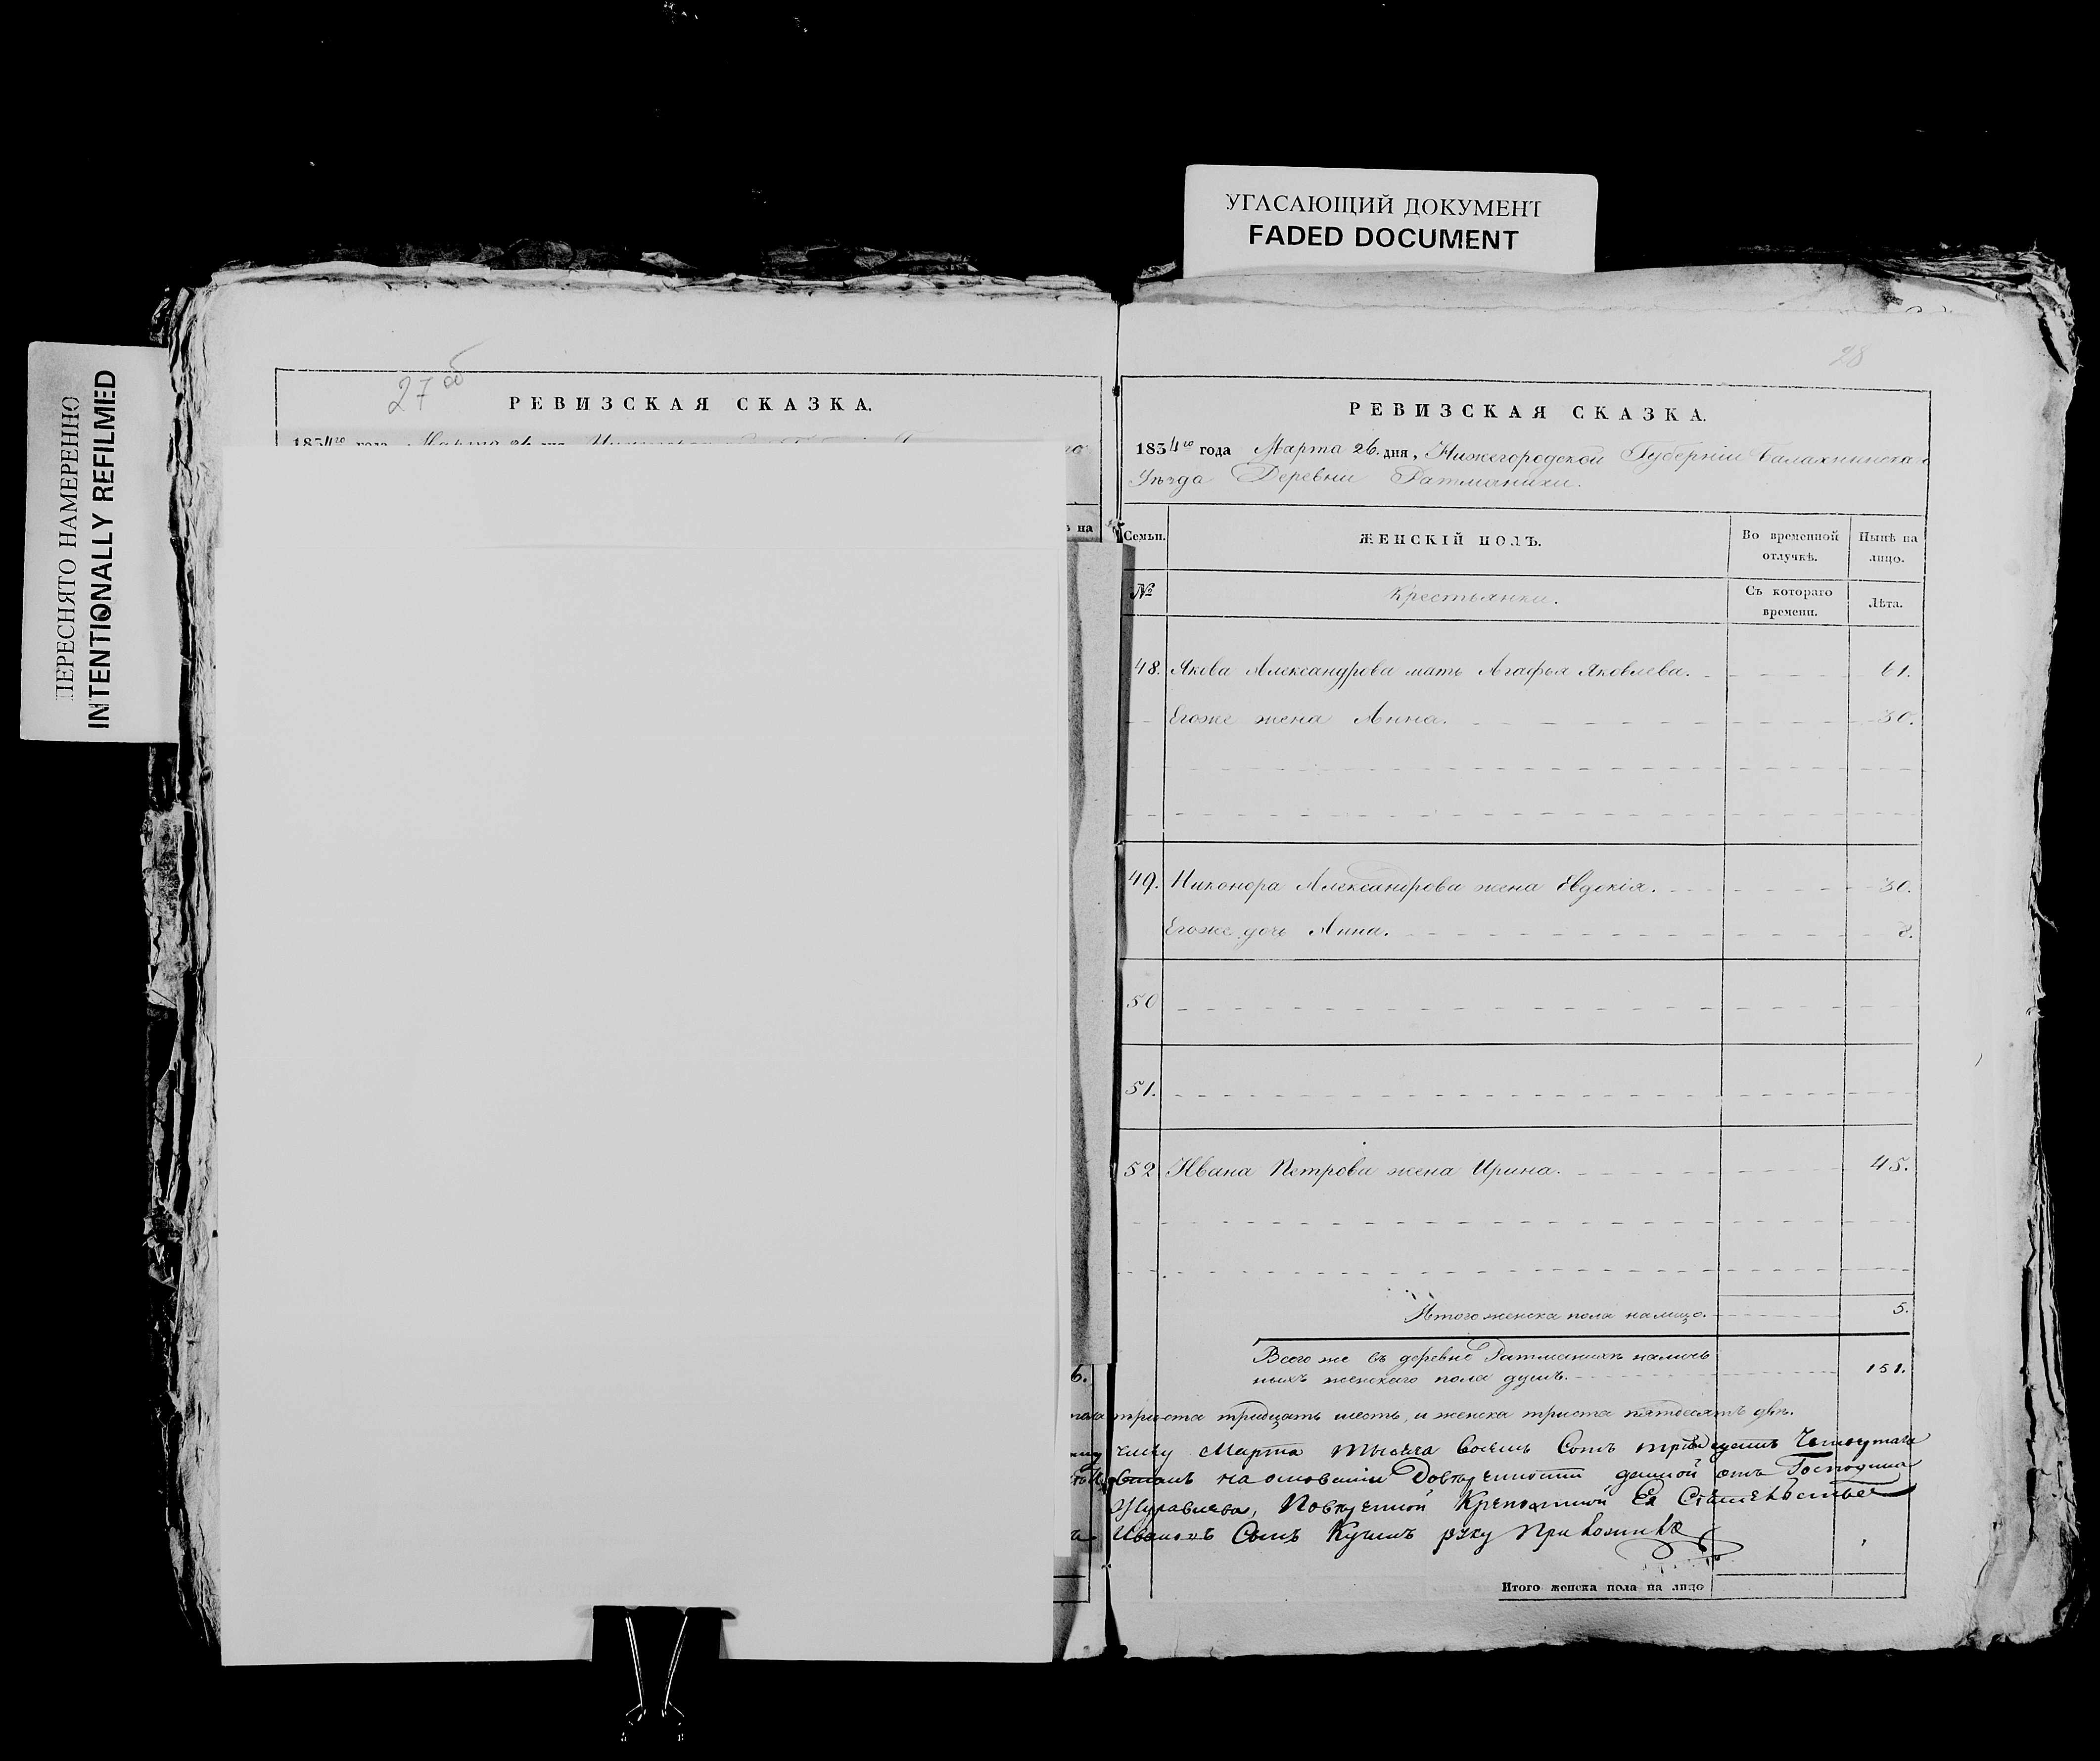 УГАСАЮЩИЙ ДОКУМЕНТ
FADED DOCUMENT
ПЕРЕСНЯТО НАМЕРЕННО
INTENTIONALLY REFILMED
27 об
РЕВИЗСКАЯ СКАЗКА.
ь на
28
РЕВИЗСКАЯ СКАЗКА.
1834го года Марта 26. дня, Нижегородской Губерніи Балахнинска
Уѣзда Деревни Ратманихи.
Семьи. ЖЕНСКІЙ ПОЛЪ. Во временной отлучкѣ. Нынѣ на лицо.
№ Крестьянки. Съ котораго времени. Лѣта.
48. Якова Александрова мать Агафья Яковлева. 61.
Егоже жена Анна. 30.
49. Никонора Александрова жена Евдокія. 30.
Егоже дочь Анна. 8.
50
51.
52 Ивана Петрова жена Ирина. 45.
Итого женска пола налицо. 5.
Всего же въ деревнѣ Ратманихѣ налич
ныхъ женскаго пола душъ. 151.
триста тридцать шесть, и женска триста пятдесятъ двѣ.
Марта тысяча восемь Сотъ тридцать Четвертаго
на основаніи Довѣренности данной отъ Господина
Журавлева, Повѣренной Крепостной Ея
Ивановъ Сынъ руку приложилъ
Итого женска пола на лицо